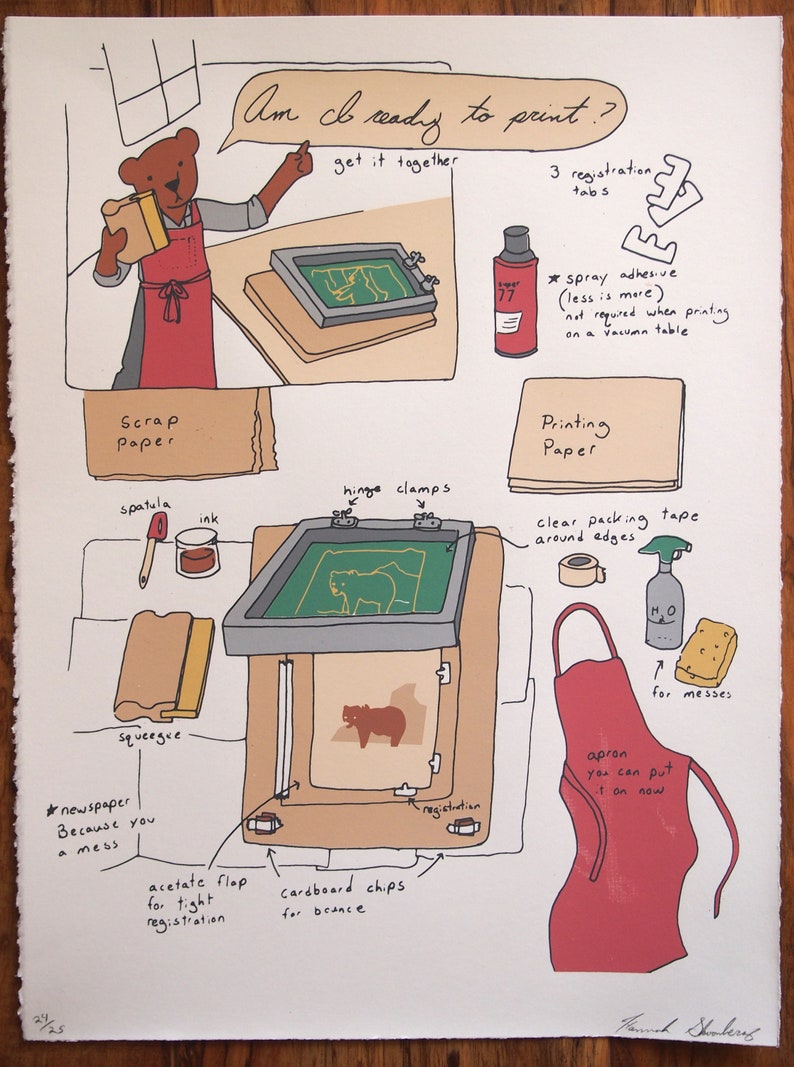 Am I ready to print?
get it together
3 registration
tabs
super
77
★ spray adhesive
(less is more)
not required when printing
on a vacumn table
Scrap
paper
Printing
Paper
hinge clamps
spatula
ink
clear packing tape
around edges
H2O
for messes
squeegee
apron
you can put
it on now
★ newspaper
Because you
a mess
registration
acetate flap
for tight
registration
cardboard chips
for bounce
24/25
Hannah